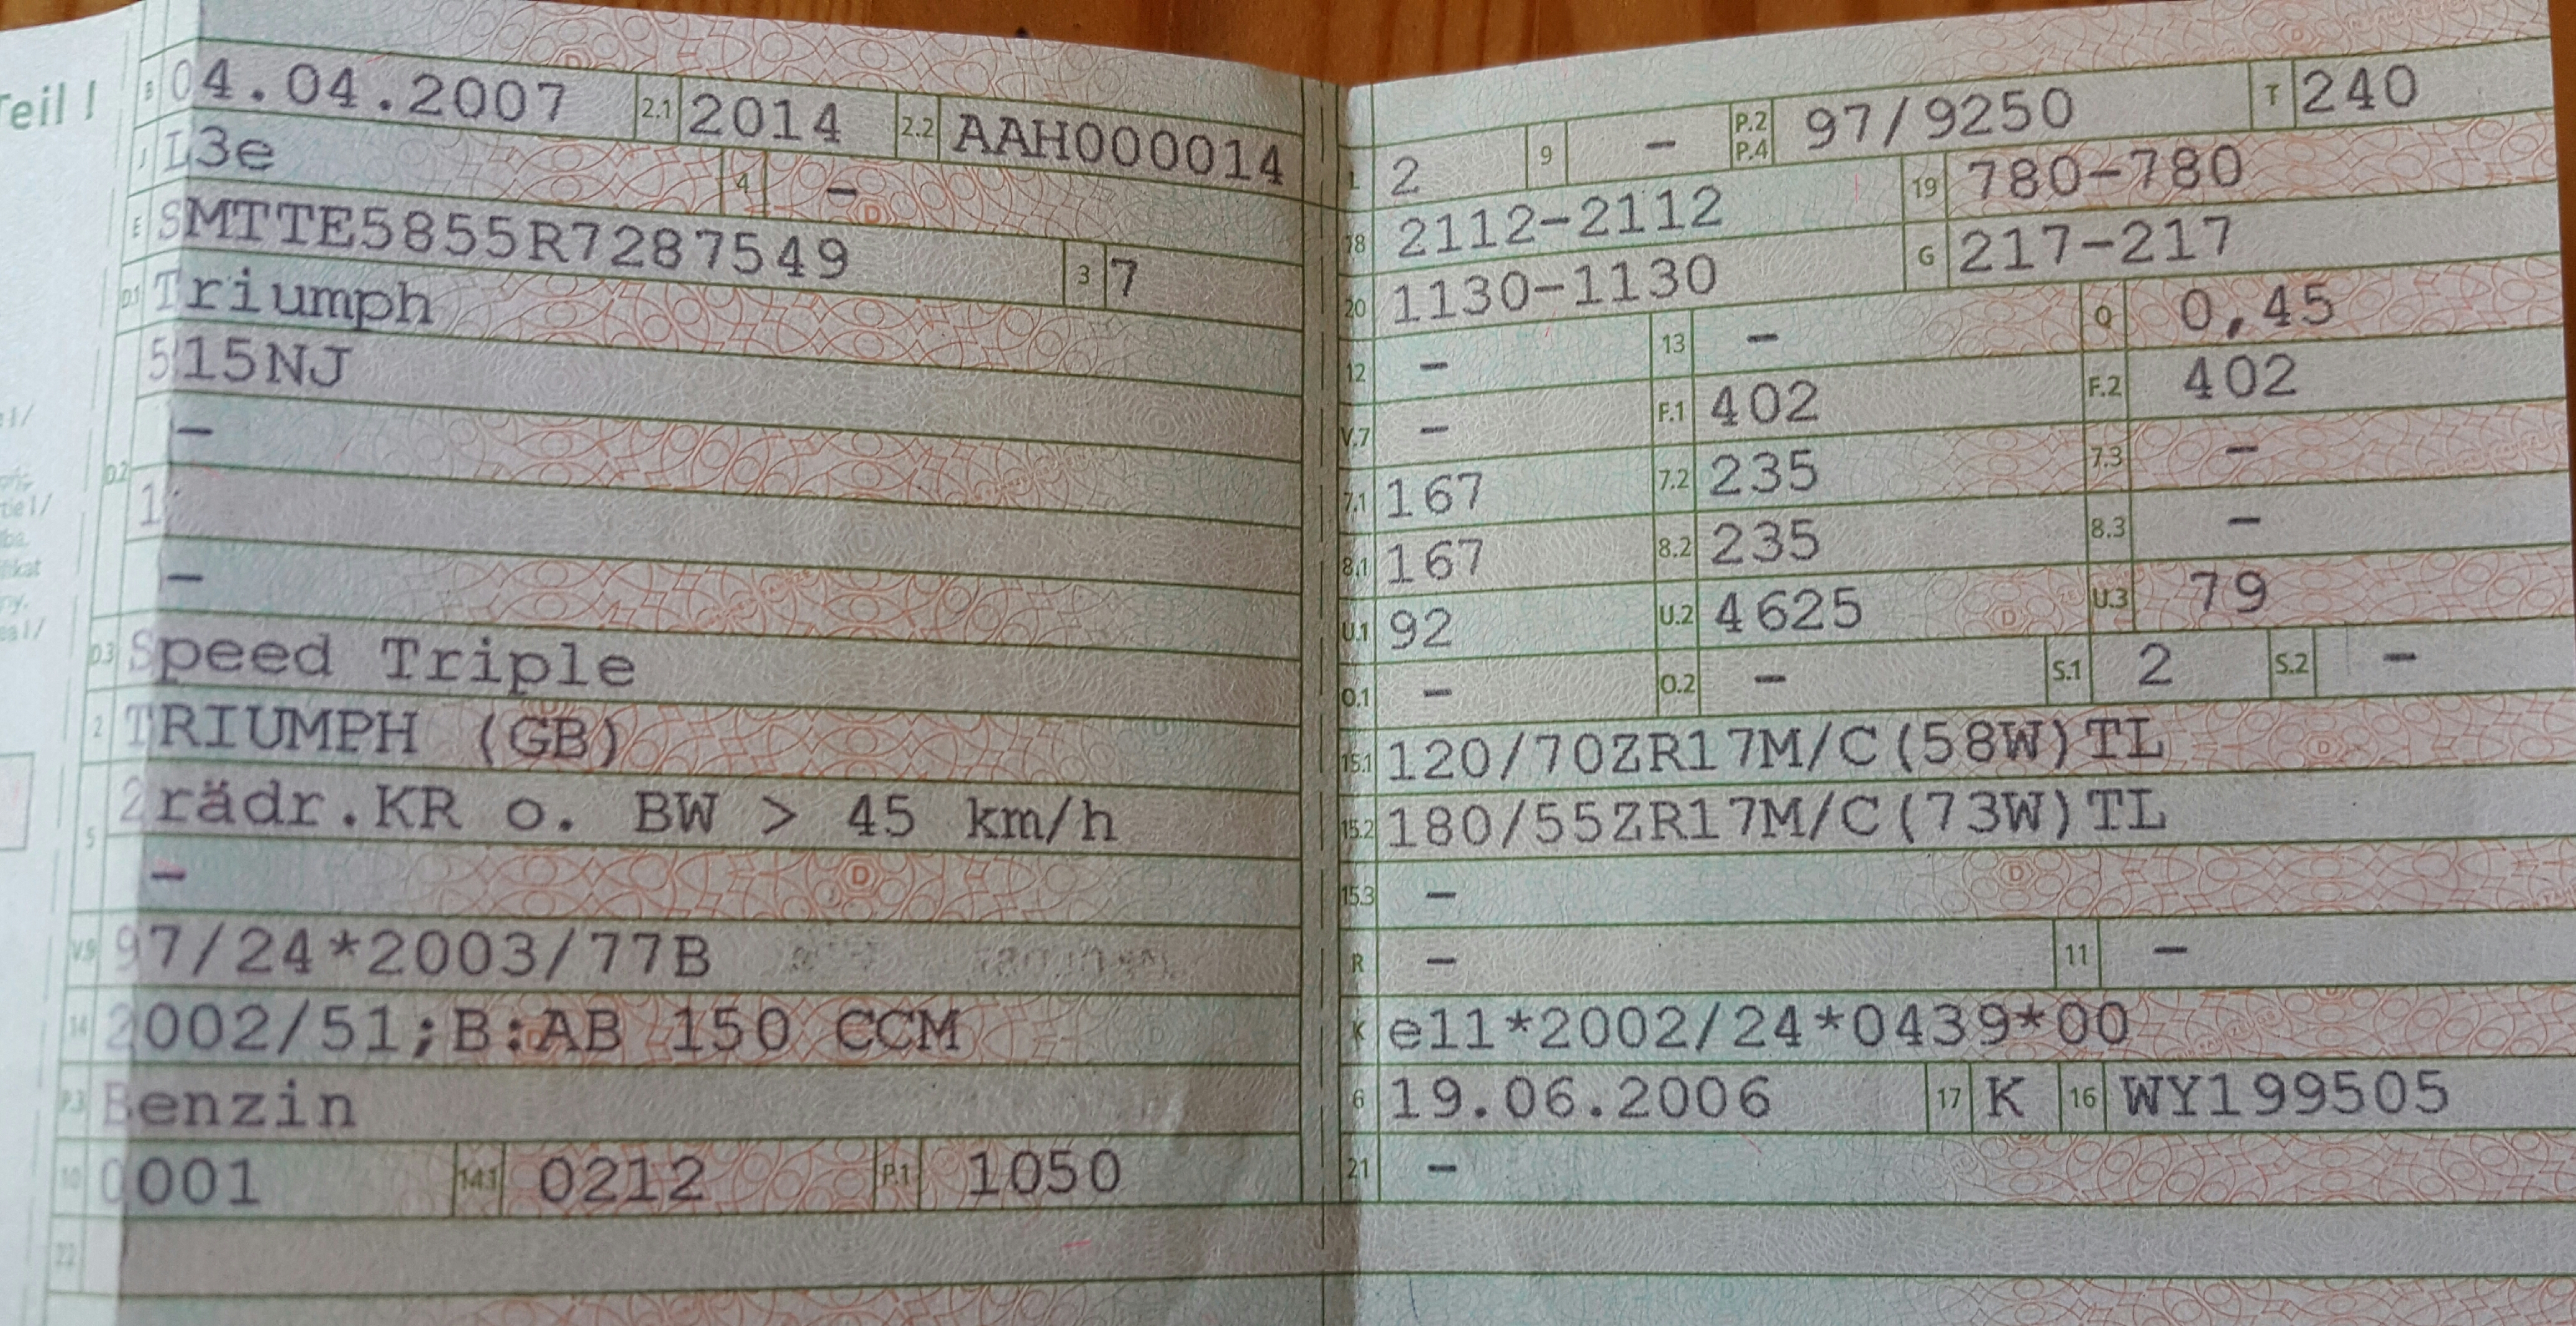 Teil I
B 04.04.2007 2.1 2014 2.2 AAH000014
J L3e 4 –
E SMTTE5855R7287549 3 7
D.1 Triumph
515NJ
–
D.2
1
–
D.3 Speed Triple
2 TRIUMPH (GB)
5 2rädr.KR o. BW > 45 km/h
–
V.9 97/24*2003/77B
14 2002/51;B:AB 150 CCM
P.3 Benzin
10 0001 14.1 0212 P.1 1050
22
L 2 9 – P.2 P.4 97/9250 T 240
18 2112-2112 19 780-780
20 1130-1130 G 217-217
12 – 13 – Q 0,45
V.7 – F.1 402 F.2 402
7.1 167 7.2 235 7.3 –
8.1 167 8.2 235 8.3 –
U.1 92 U.2 4625 U.3 79
O.1 – O.2 – S.1 2 S.2 –
15.1 120/70ZR17M/C(58W)TL
15.2 180/55ZR17M/C(73W)TL
15.3 –
R – 11 –
K e11*2002/24*0439*00
6 19.06.2006 17 K 16 WY199505
21 –